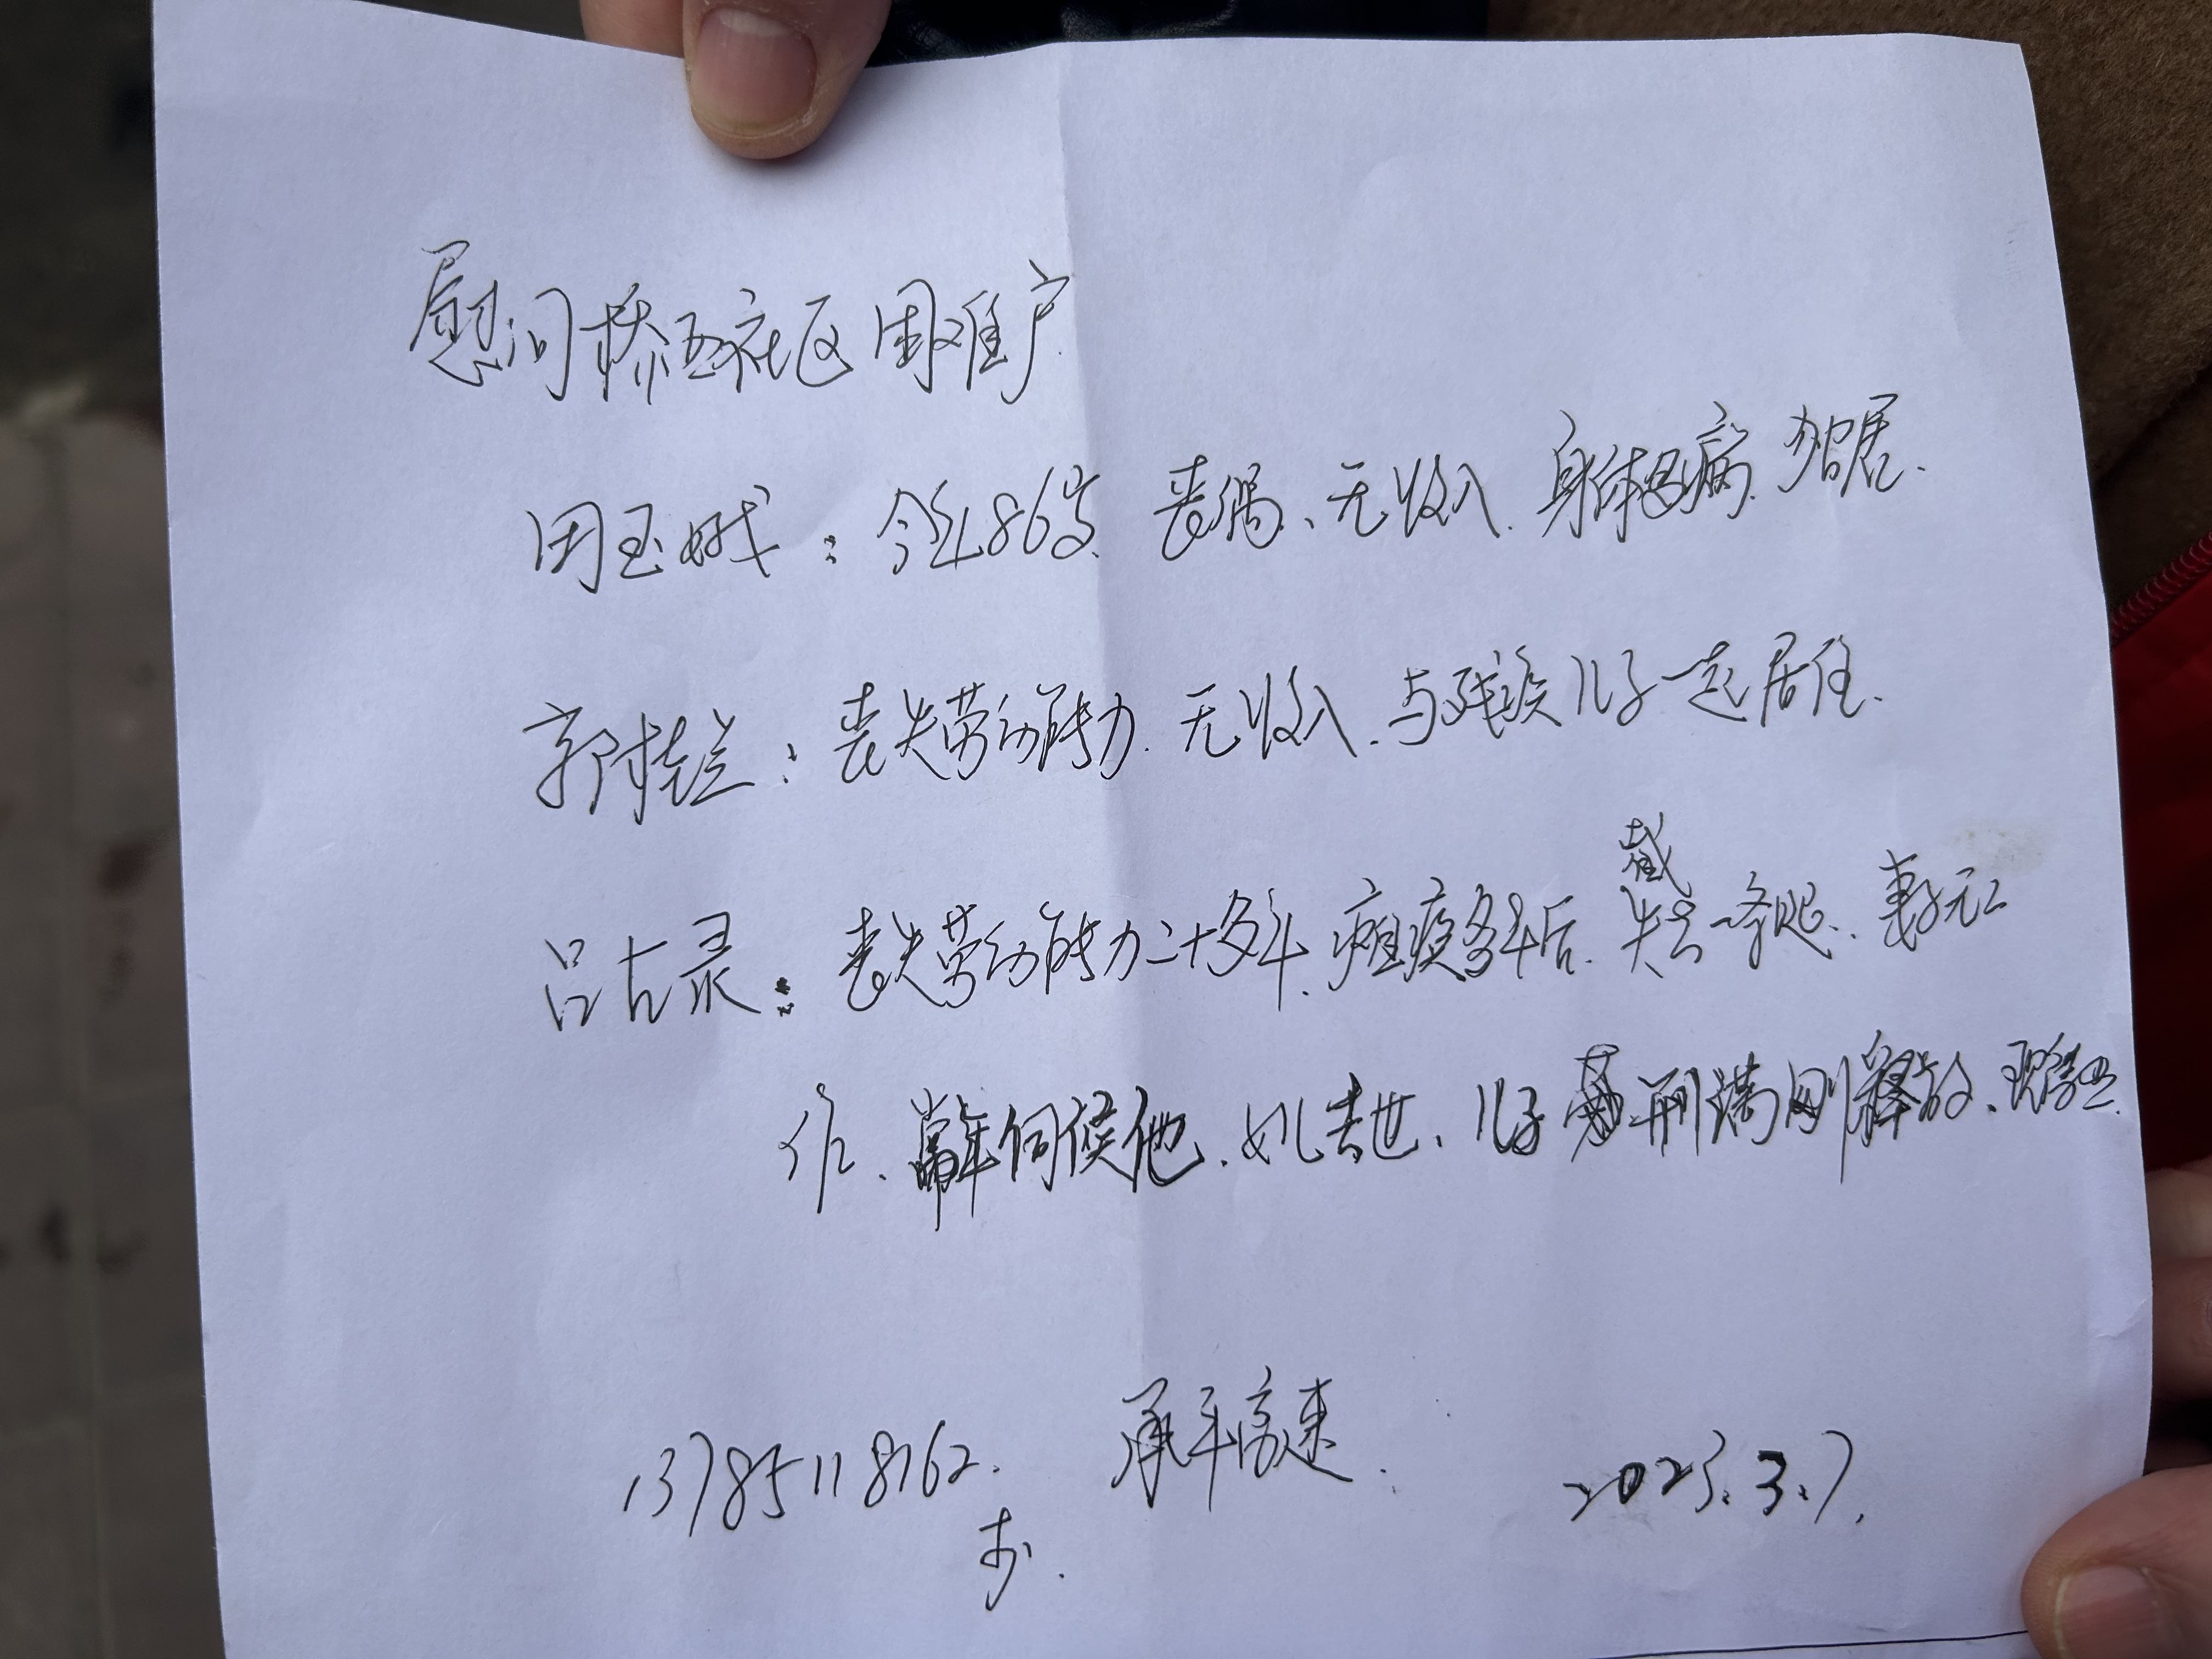 慰问桥西社区困难户
周玉娥：今年86岁、丧偶、无收入、身体患病、独居.
郭桂兰：丧失劳动能力、无收入、与残疾儿子一起居住.
吕占录：丧失劳动能力二十多年、瘫痪多年后、截失去一条腿、妻子无工
作、常年伺候他、女儿去世、儿子刑满刚释放、现待业.
13785118162. 承平高速. 2023.3.7.